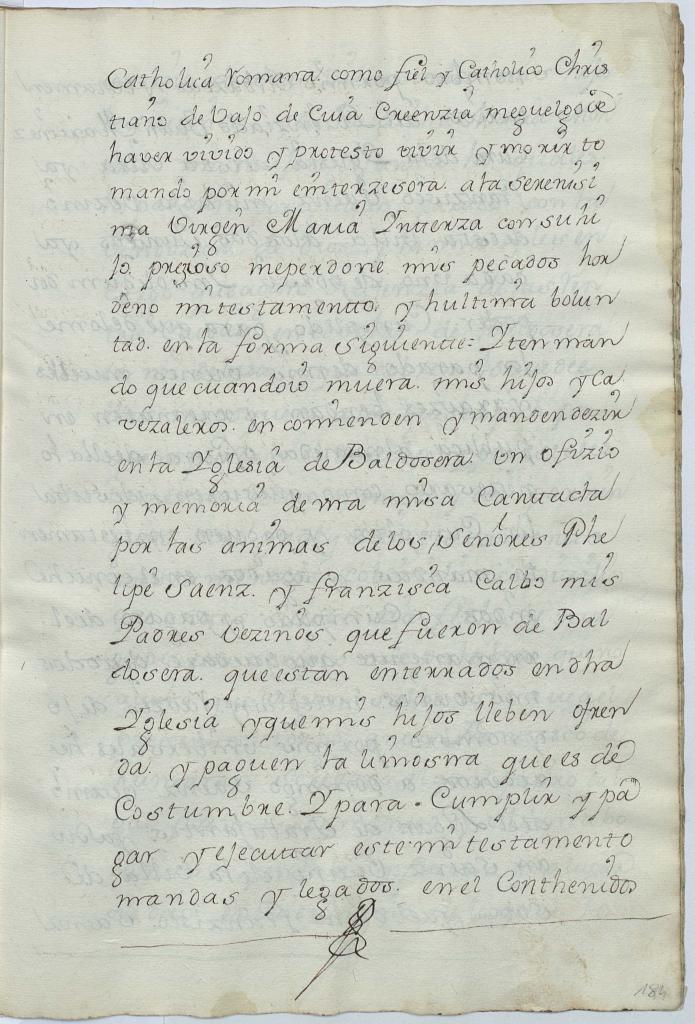 Catholica Romana. como fiel y Catholico Chris
tiano de vajo de Cuia Creenzia me guelgo de
haver vivido y protesto vivir y morir to
mando por mi enterzesora. a la serenisi
ma Virgen Maria Ynterza con su hi
jo. prezioso me perdone mis pecados hor
deno mi testamentto. y hultima bolun
tad. en la forma siguientte = Yten man
do que cuando io muera. mis hijos y ca
vezaleros. en comienden y manden dezir
en la Yglesia de Baldosera. un ofizio
y memoria de una misa Canttada
por las animas de los Señores Phe
lipe Saenz. y franzisca Calbo mis
Padres vezinos. que fueron de Bal
dosera. que estan enterrados en dha
Yglesia y que mis hijos lleben ofren
da. y paguen la limosna que es de
Costumbre. Y para. Cumplir y pa
gar y ejecuttar este mi testamento
mandas y legados. en el Conthenidos
184